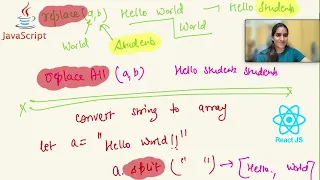 JavaScript
replace (a,b) Hello World → Hello Students
World
World Students
replace All (a,b) Hello Students Students
convert string to array
let a = "Hello World!!"
React JS
a. split (" ") → [Hello, World]